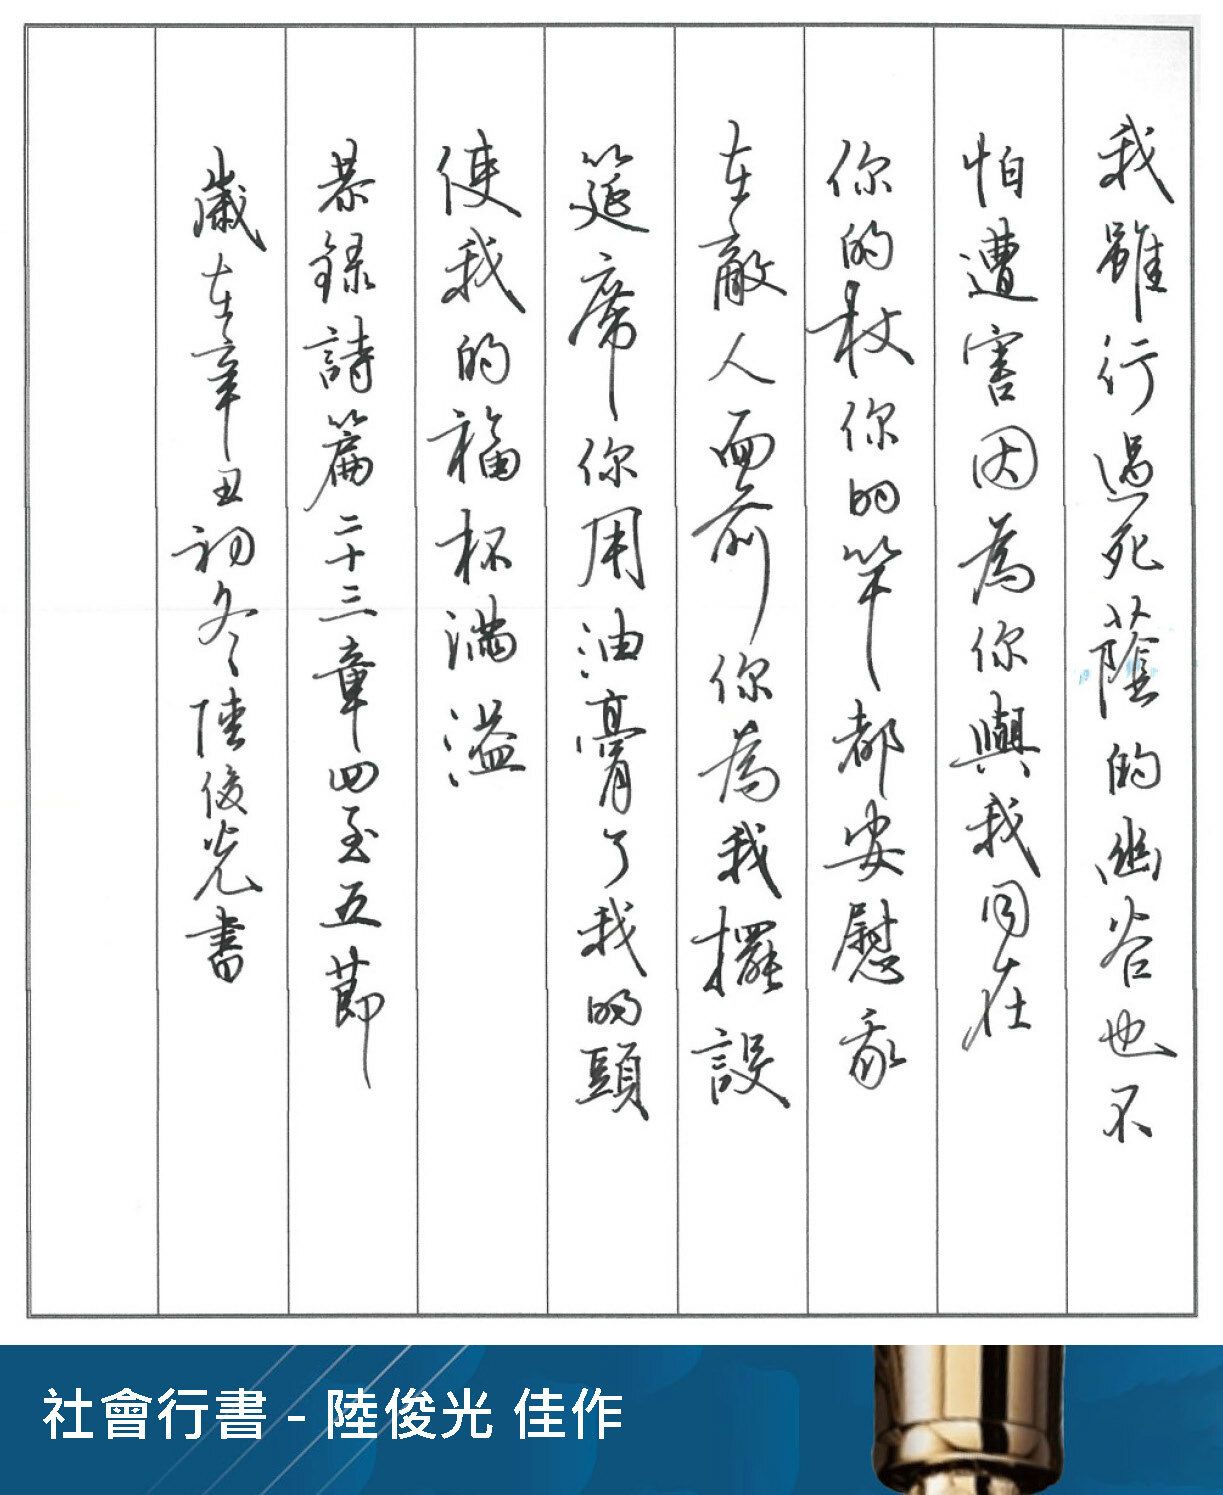 我雖行過死蔭的幽谷也不
怕遭害因為你與我同在
你的杖你的竿都安慰我
在敵人面前你為我擺設
筵席你用油膏了我的頭
使我的福杯滿溢
恭錄詩篇二十三章四至五節
歲在辛丑初冬陸俊光書
社會行書 - 陸俊光 佳作